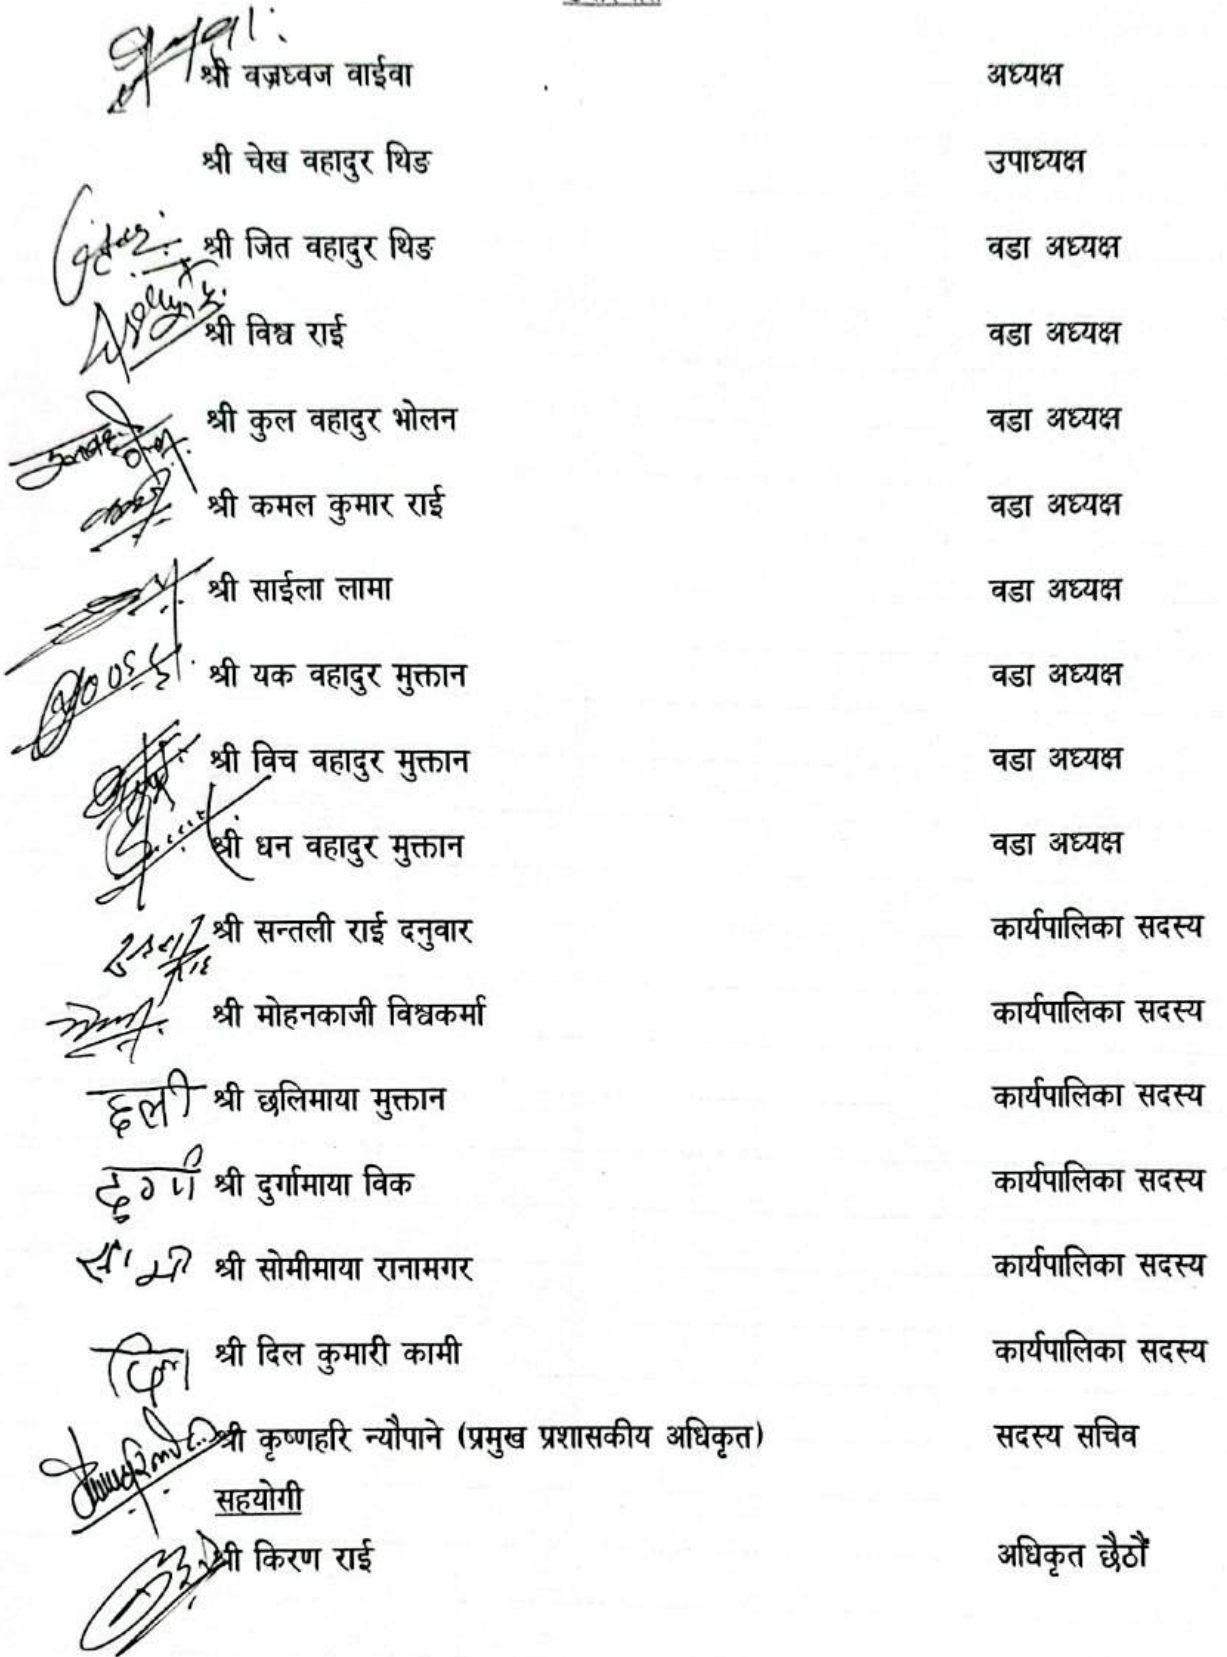 श्री वज्रध्वज वाईवा अध्यक्ष
श्री चेख वहादुर थिङ उपाध्यक्ष
श्री जित वहादुर थिङ वडा अध्यक्ष
श्री विश्व राई वडा अध्यक्ष
श्री कुल वहादुर भोलन वडा अध्यक्ष
श्री कमल कुमार राई वडा अध्यक्ष
श्री साईला लामा वडा अध्यक्ष
श्री यक वहादुर मुक्तान वडा अध्यक्ष
श्री विच वहादुर मुक्तान वडा अध्यक्ष
श्री धन वहादुर मुक्तान वडा अध्यक्ष
श्री सन्तली राई दनुवार कार्यपालिका सदस्य
श्री मोहनकाजी विश्वकर्मा कार्यपालिका सदस्य
छली श्री छलिमाया मुक्तान कार्यपालिका सदस्य
दुर्गा श्री दुर्गामाया विक कार्यपालिका सदस्य
श्री सोमीमाया रानामगर कार्यपालिका सदस्य
श्री दिल कुमारी कामी कार्यपालिका सदस्य
श्री कृष्णहरि न्यौपाने (प्रमुख प्रशासकीय अधिकृत) सदस्य सचिव
सहयोगी
श्री किरण राई अधिकृत छैठौं